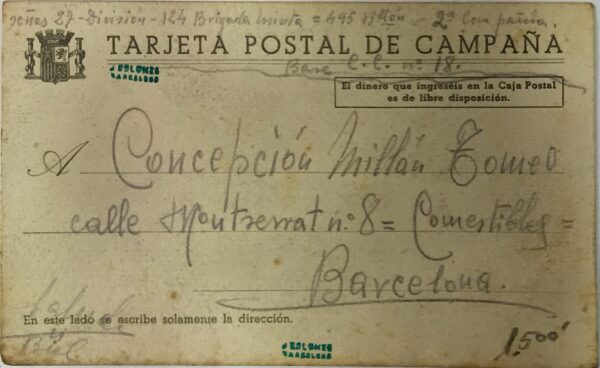 señas 27-División-124 Brigada mixta = 495 Bton - 2ª Compañia.
TARJETA POSTAL DE CAMPAÑA
Base C.C. nº 18.
El dinero que ingreséis en la Caja Postal
es de libre disposición.
A Concepción Millán Tomeo
calle Montserrat nº 8 = Comestibles =
Barcelona.
En este lado se escribe solamente la dirección.
1.500